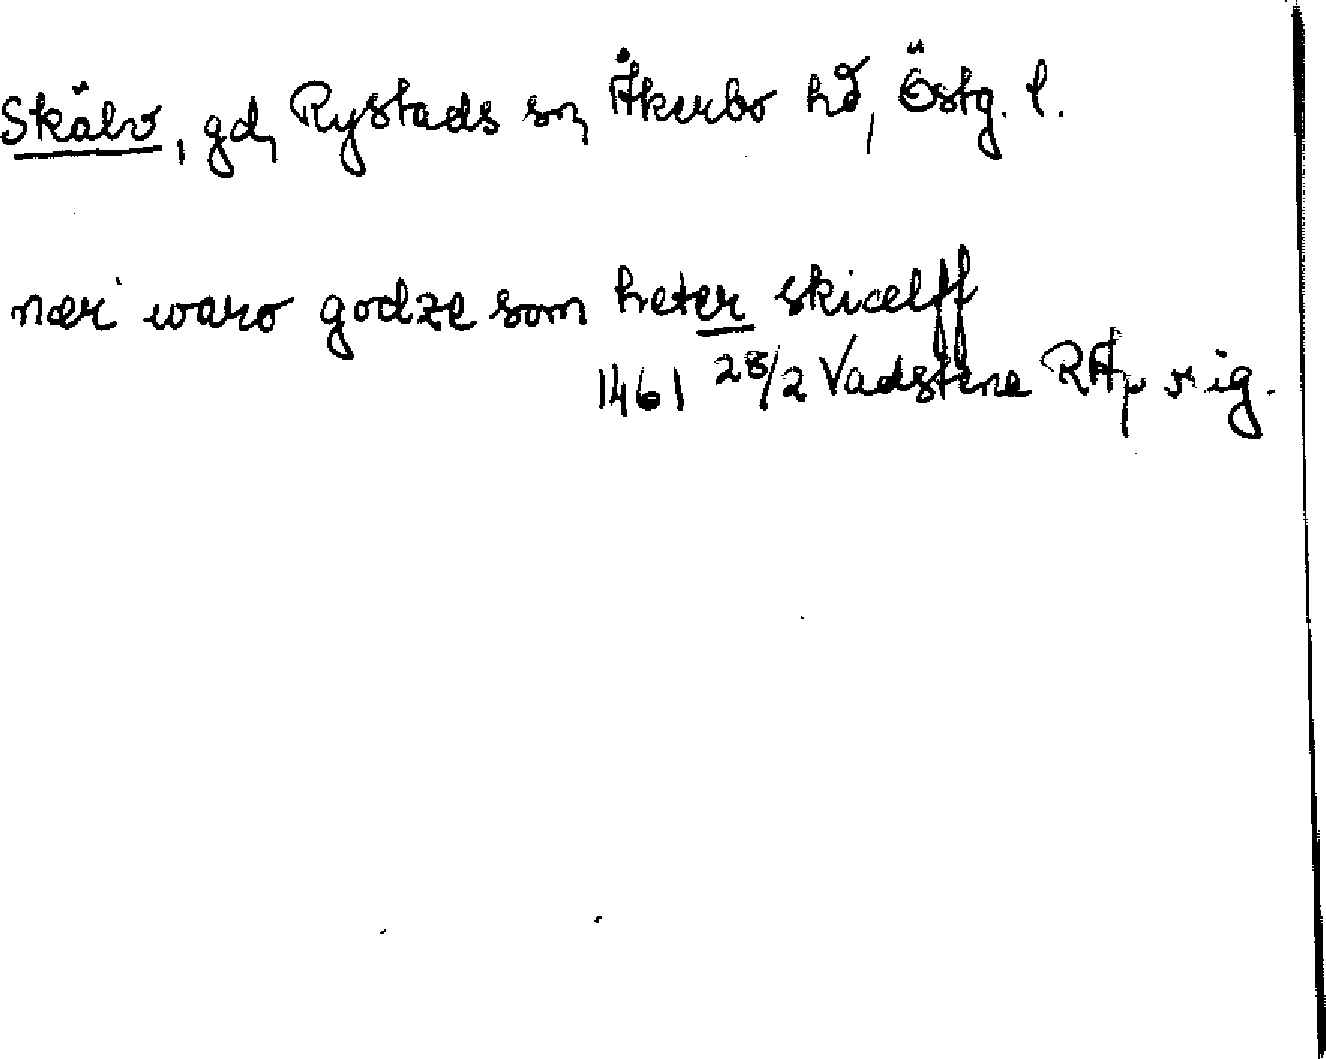 Skälv, gd, Rystads sn, Åkerbo hd, Östg. l.
nær waro godze som heter skiælff
1461 28/2 Vadstena RAp sig.